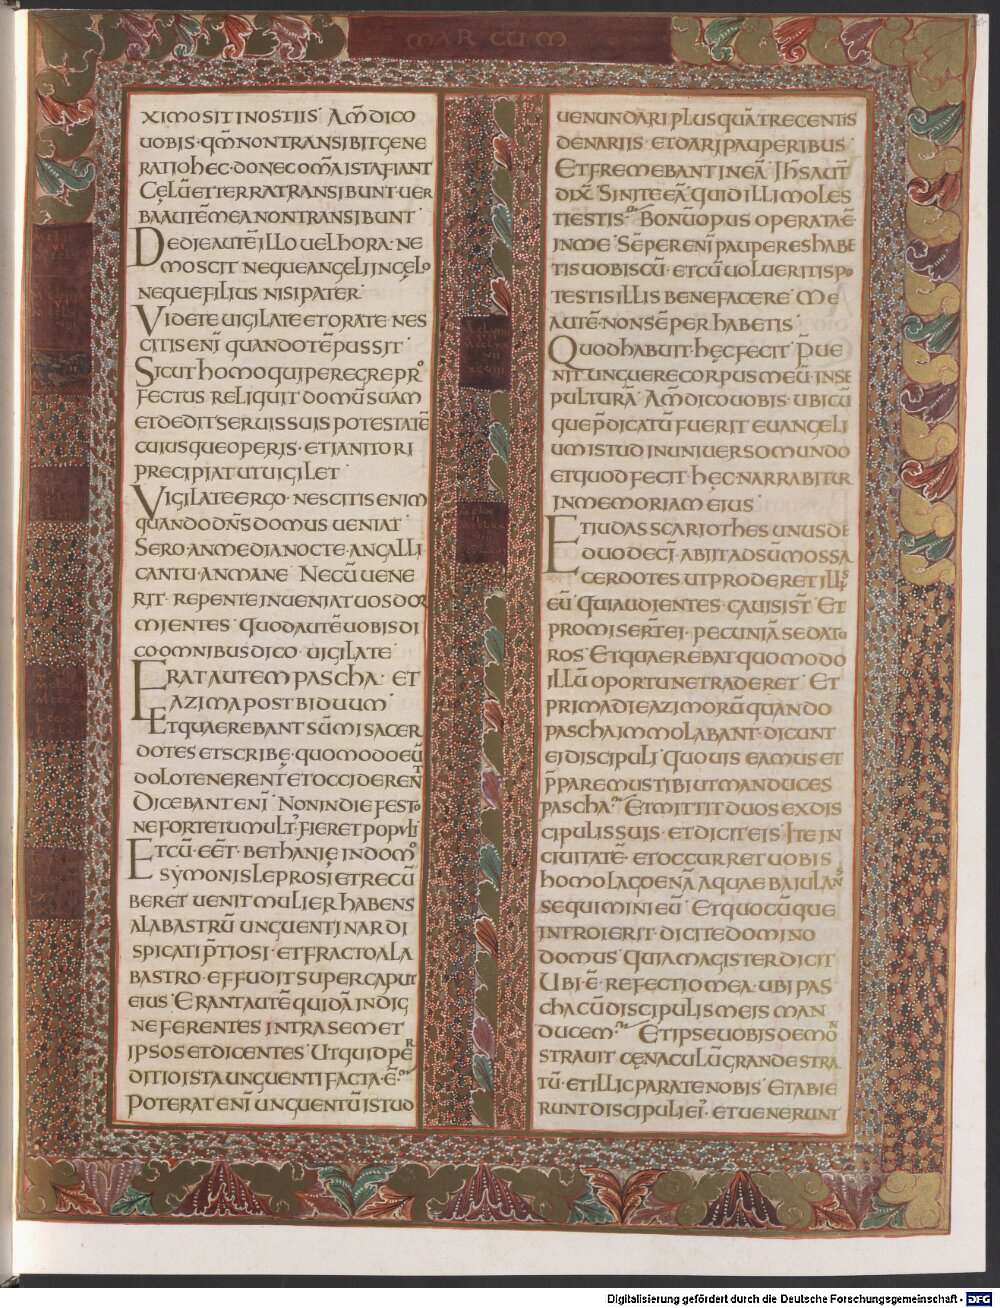 MARCUM
XIMO SIT INOSTIIS AM̄ DICO
UOBIS · QM̄ NON TRANSIBIT GENE
RATIO HEC · DONEC OM̄A ISTA FIANT
CĘLŪ ET TERRA TRANSIBUNT · UER
BA AUTĒ MEA NON TRANSIBUNT ·
DE DIE AUTĒ ILLO UEL HORA · NE
MO SCIT NEQUE ANGELI IN CĘLO
NEQUE FILIUS NISI PATER
VIDETE UIGILATE ET ORATE · NES
CITIS ENĪ QUANDO TĒPUS SIT ·
SICUT HOMO QUI PEREGRE PRO
FECTUS RELIQUIT DOMŪ SUAM
ET DEDIT SERUIS SUIS POTESTATĒ
CUIUSQUE OPERIS · ET IANITORI
PRECIPIAT UT UIGILET ·
VIGILATE ERGO · NESCITIS ENIM
QUANDO DN̄S DOMUS UENIAT ·
SERO · AN MEDIA NOCTE · AN GALLI
CANTU · AN MANE NE CŪ UENE
RIT · REPENTE INUENIAT UOS DOR
MIENTES QUOD AUTĒ UOBIS DI
CO OMNIBUS DICO · UIGILATE
ERAT AUTEM PASCHA · ET
AZIMA POST BIDUUM
ET QUAEREBANT SŪMI SACER
DOTES ET SCRIBĘ · QUOMODO EŪ
DOLO TENERENT ET OCCIDERENT
DICEBANT ENĪ NON IN DIE FESTO
NE FORTE TUMULT᾿ FIERET POPULI
ET CŪ EET̄ · BETHANIĘ IN DOMO
SYMONIS LEPROSI ET RECŪ
BERET UENIT MULIER HABENS
ALABASTRŪ UNGUENTI NARDI
SPICATI P̄TIOSI · ET FRACTO ALA
BASTRO · EFFUDIT SUPER CAPUT
EIUS ERANT AUTĒ QUIDĀ INDIG
NE FERENTES INTRA SEMET
IPSOS ET DICENTES UT QUID PER
DITIO ISTA UNGUENTI FACTA · Ē ·
POTERAT ENĪ UNGUENTŪ ISTUD
UENUNDARI PLUS QUĀ TRECENTIS
DENARIIS · ET DARI PAUPERIBUS
ET FREMEBANT IN EĀ IHS AUT̄
DIX̄ SINITE EĀ QUID ILLI MOLES
TI ESTIS BONŪ OPUS OPERATA Ē
IN ME SĒPER ENĪ PAUPERES HABE
TIS UOBISCŪ · ET CŪ UOLUERITIS PO
TESTIS ILLIS BENEFACERE ME
AUTĒ · NON SĒPER HABETIS
QUOD HABUIT HĘC FECIT P̄UE
NIT UNGUERE CORPUS MEŪ IN SE
PULTURĀ AM̄ DICO UOBIS · UBICŪ
QUE P̄DICATŪ FUERIT EUANGELI
UM ISTUD IN UNIUERSO MUNDO
ET QUOD FECIT · HĘC · NARRABITUR
IN MEMORIAM EIUS
ET IUDAS SCARIOTHES UNUS DE
DUODECĪ · ABIIT AD SŪMOS SA
CERDOTES UT PRODERET ILLIS
EŪ QUI AUDIENTES · GAUISI ST̄ ET
PROMISERT̄ EI · PECUNIĀ SE DATU
ROS ET QUAEREBAT QUOMODO
ILLŪ OPORTUNE TRADERET ET
PRIMA DIE AZIMORŪ QUANDO
PASCHA IMMOLABANT · DICUNT
EI DISCIPULI QUO UIS EAMUS ET
P̄PAREMUS TIBI UT MANDUCES
PASCHA ET MITTIT DUOS EX DIS
CIPULIS SUIS · ET DICIT EIS ITE IN
CIUITATĒ · ET OCCURRET UOBIS
HOMO LAGOENĀ AQUAE BAJULANS
SEQUIMINI EŪ ET QUOCŪQUE
INTROIERIT · DICITE DOMINO
DOMUS QUIA MAGISTER DICIT
UBI · Ē · REFECTIO MEA · UBI PAS
CHA CŪ DISCIPULIS MEIS MAN
DUCEM ET IPSE UOBIS DEMON
STRAUIT CĘNACULŪ GRANDE STRA
TŪ · ET ILLIC PARATE NOBIS ET ABIE
RUNT DISCIPULI EI᾿ · ET UENERUNT
Digitalisierung gefördert durch die Deutsche Forschungsgemeinschaft - DFG